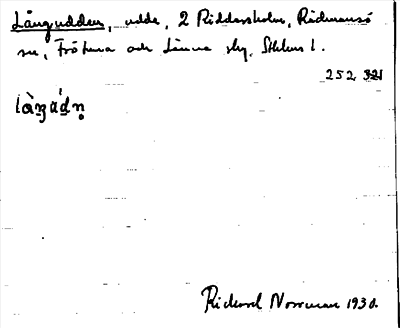 Långudden, udde, 2 Riddersholm, Rådmansö
sn, Frötuna och Länna slg, Sthlms l.
252 321
làŋu̇́dn̥
Rickard Norrman 1930.